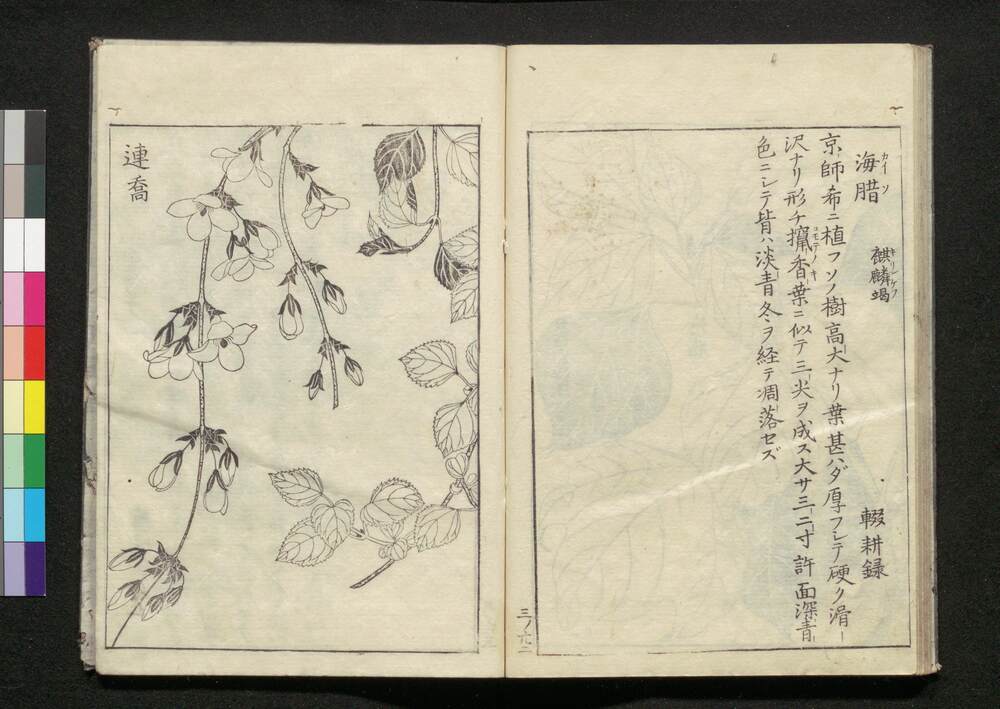 海腊 麒麟竭 輟耕録
カイソ
キリンケツ
京師希ニ植フソノ樹高大ナリ葉甚ハダ厚フシテ硬ク滑
沢ナリ形チ攛香葉ニ似テ三尖ヲ成ス大サ三二寸許面深青
コモテノキ
色ニシテ背ハ淡青冬ヲ経テ凋落セズ
連喬